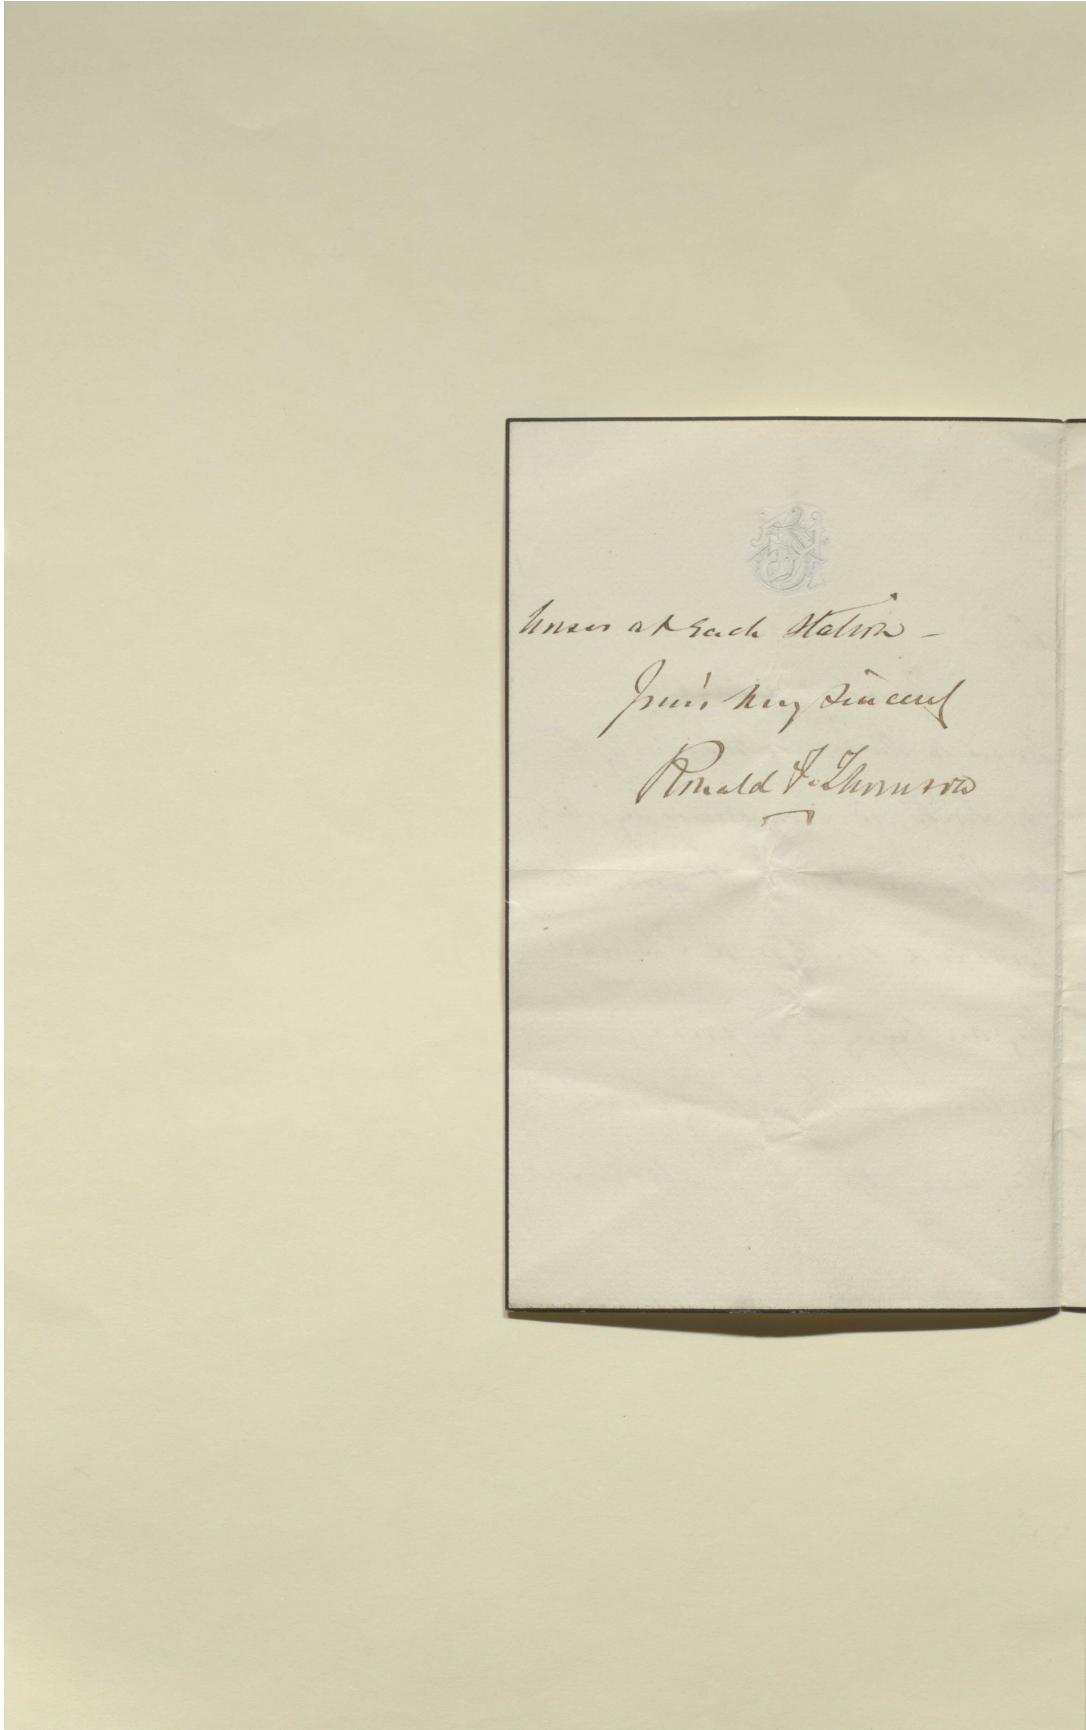 horses at each station –
Yours very sincerely
Ronald F. Thomson